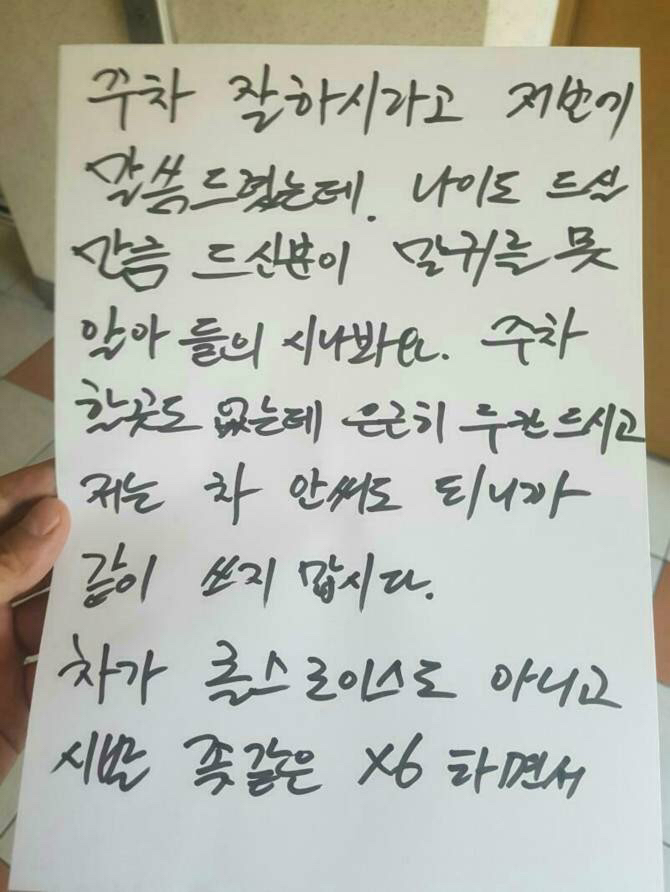 주차 잘하시라고 저번에
말씀드렸는데. 나이도 드실
만큼 드신분이 말귀를 못
알아 들으시나봐요. 주차
할곳도 없는데 은근히 두칸드시고
저는 차 안써도 되니까
같이 쓰지 맙시다.
차가 롤스로이스도 아니고
시발 좆같은 X6 타면서